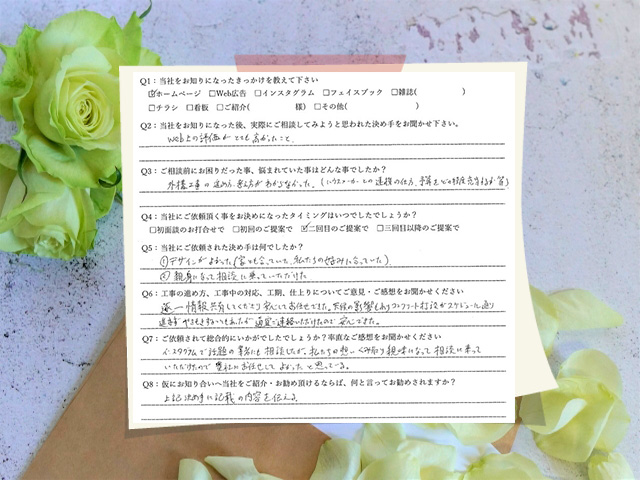 Q1：当社をお知りになったきっかけを教えて下さい
☑ホームページ □Web広告 □インスタグラム □フェイスブック □雑誌( )
□チラシ □看板 □ご紹介( 様) □その他( )
Q2：当社をお知りになった後、実際にご相談してみようと思われた決め手をお聞かせ下さい。
Web上の評価がとても高かったこと。
Q3：ご相談前にお困りだった事、悩まれていた事はどんな事でしたか？
外構工事の進め方、考え方がわからなかった。(ハウスメーカーとの連携の仕方、予算をどの程度充当するか等)
Q4：当社にご依頼頂く事をお決めになったタイミングはいつでしたでしょうか？
□初面談のお打合せで □初回のご提案で ☑二回目のご提案で □三回目以降のご提案で
Q5：当社にご依頼された決め手は何でしたか？
①デザインがよかった(家とも合っていた、私たちの好みに合っていた)
②親身になって相談に乗っていただけた
Q6：工事の進め方、工事中の対応、工期、仕上りについてご意見・ご感想をお聞かせください
逐一情報共有してくださり安心してお任せできました。天候の影響もありコンクリート打設がスケジュール通り
進まずやきもきすることもあったが適宜ご連絡いただけたので安心できた。
Q7：ご依頼されて総合的にいかがでしたでしょうか？率直なご感想をお聞かせください
インスタグラムで話題の業者にも相談したが、私たちの想いをくみ取り親身になって相談に乗って
いただけたので貴社にお任せしてよかったと思っている。
Q8：仮にお知り合いへ当社をご紹介・お勧め頂けるならば、何と言ってお勧めされますか？
上記決め手に記載の内容を伝える。